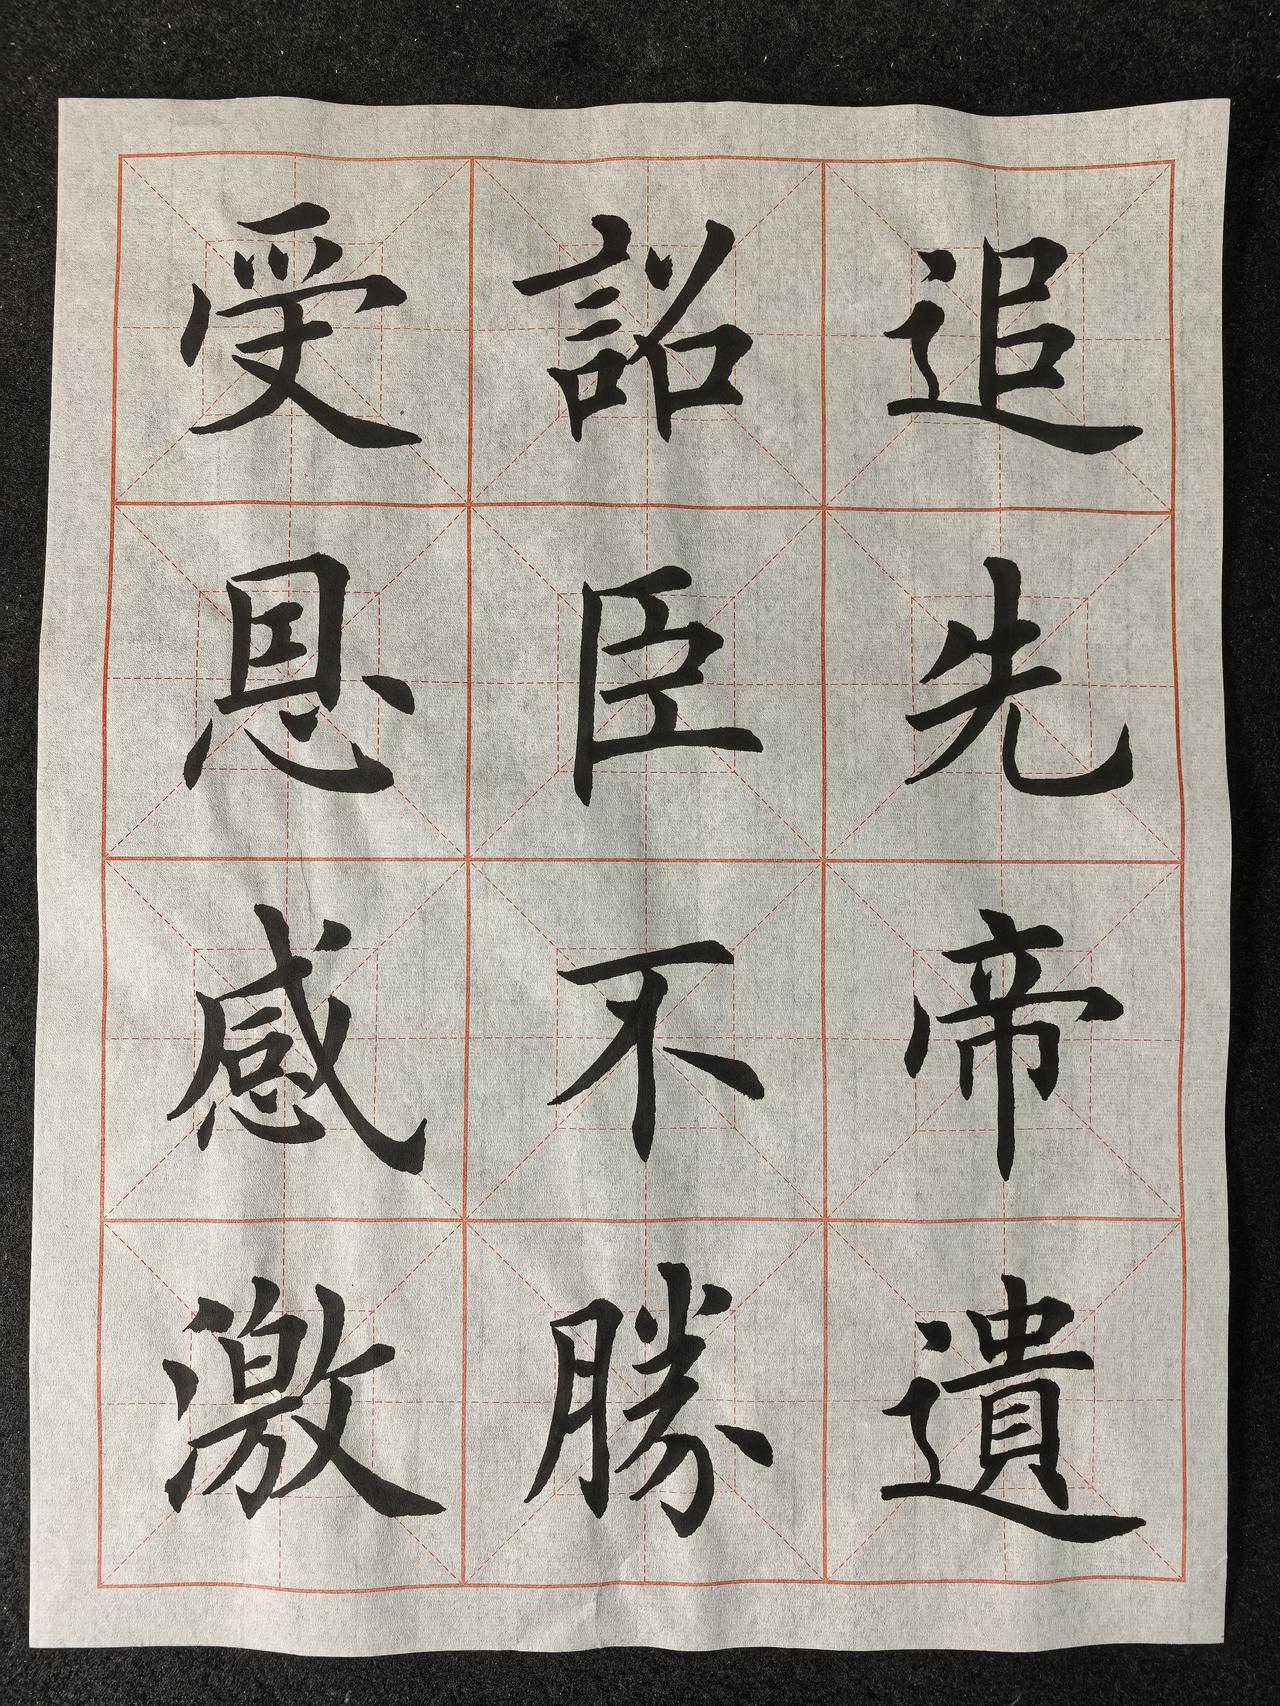 追先帝遺
詔臣不勝
受恩感激